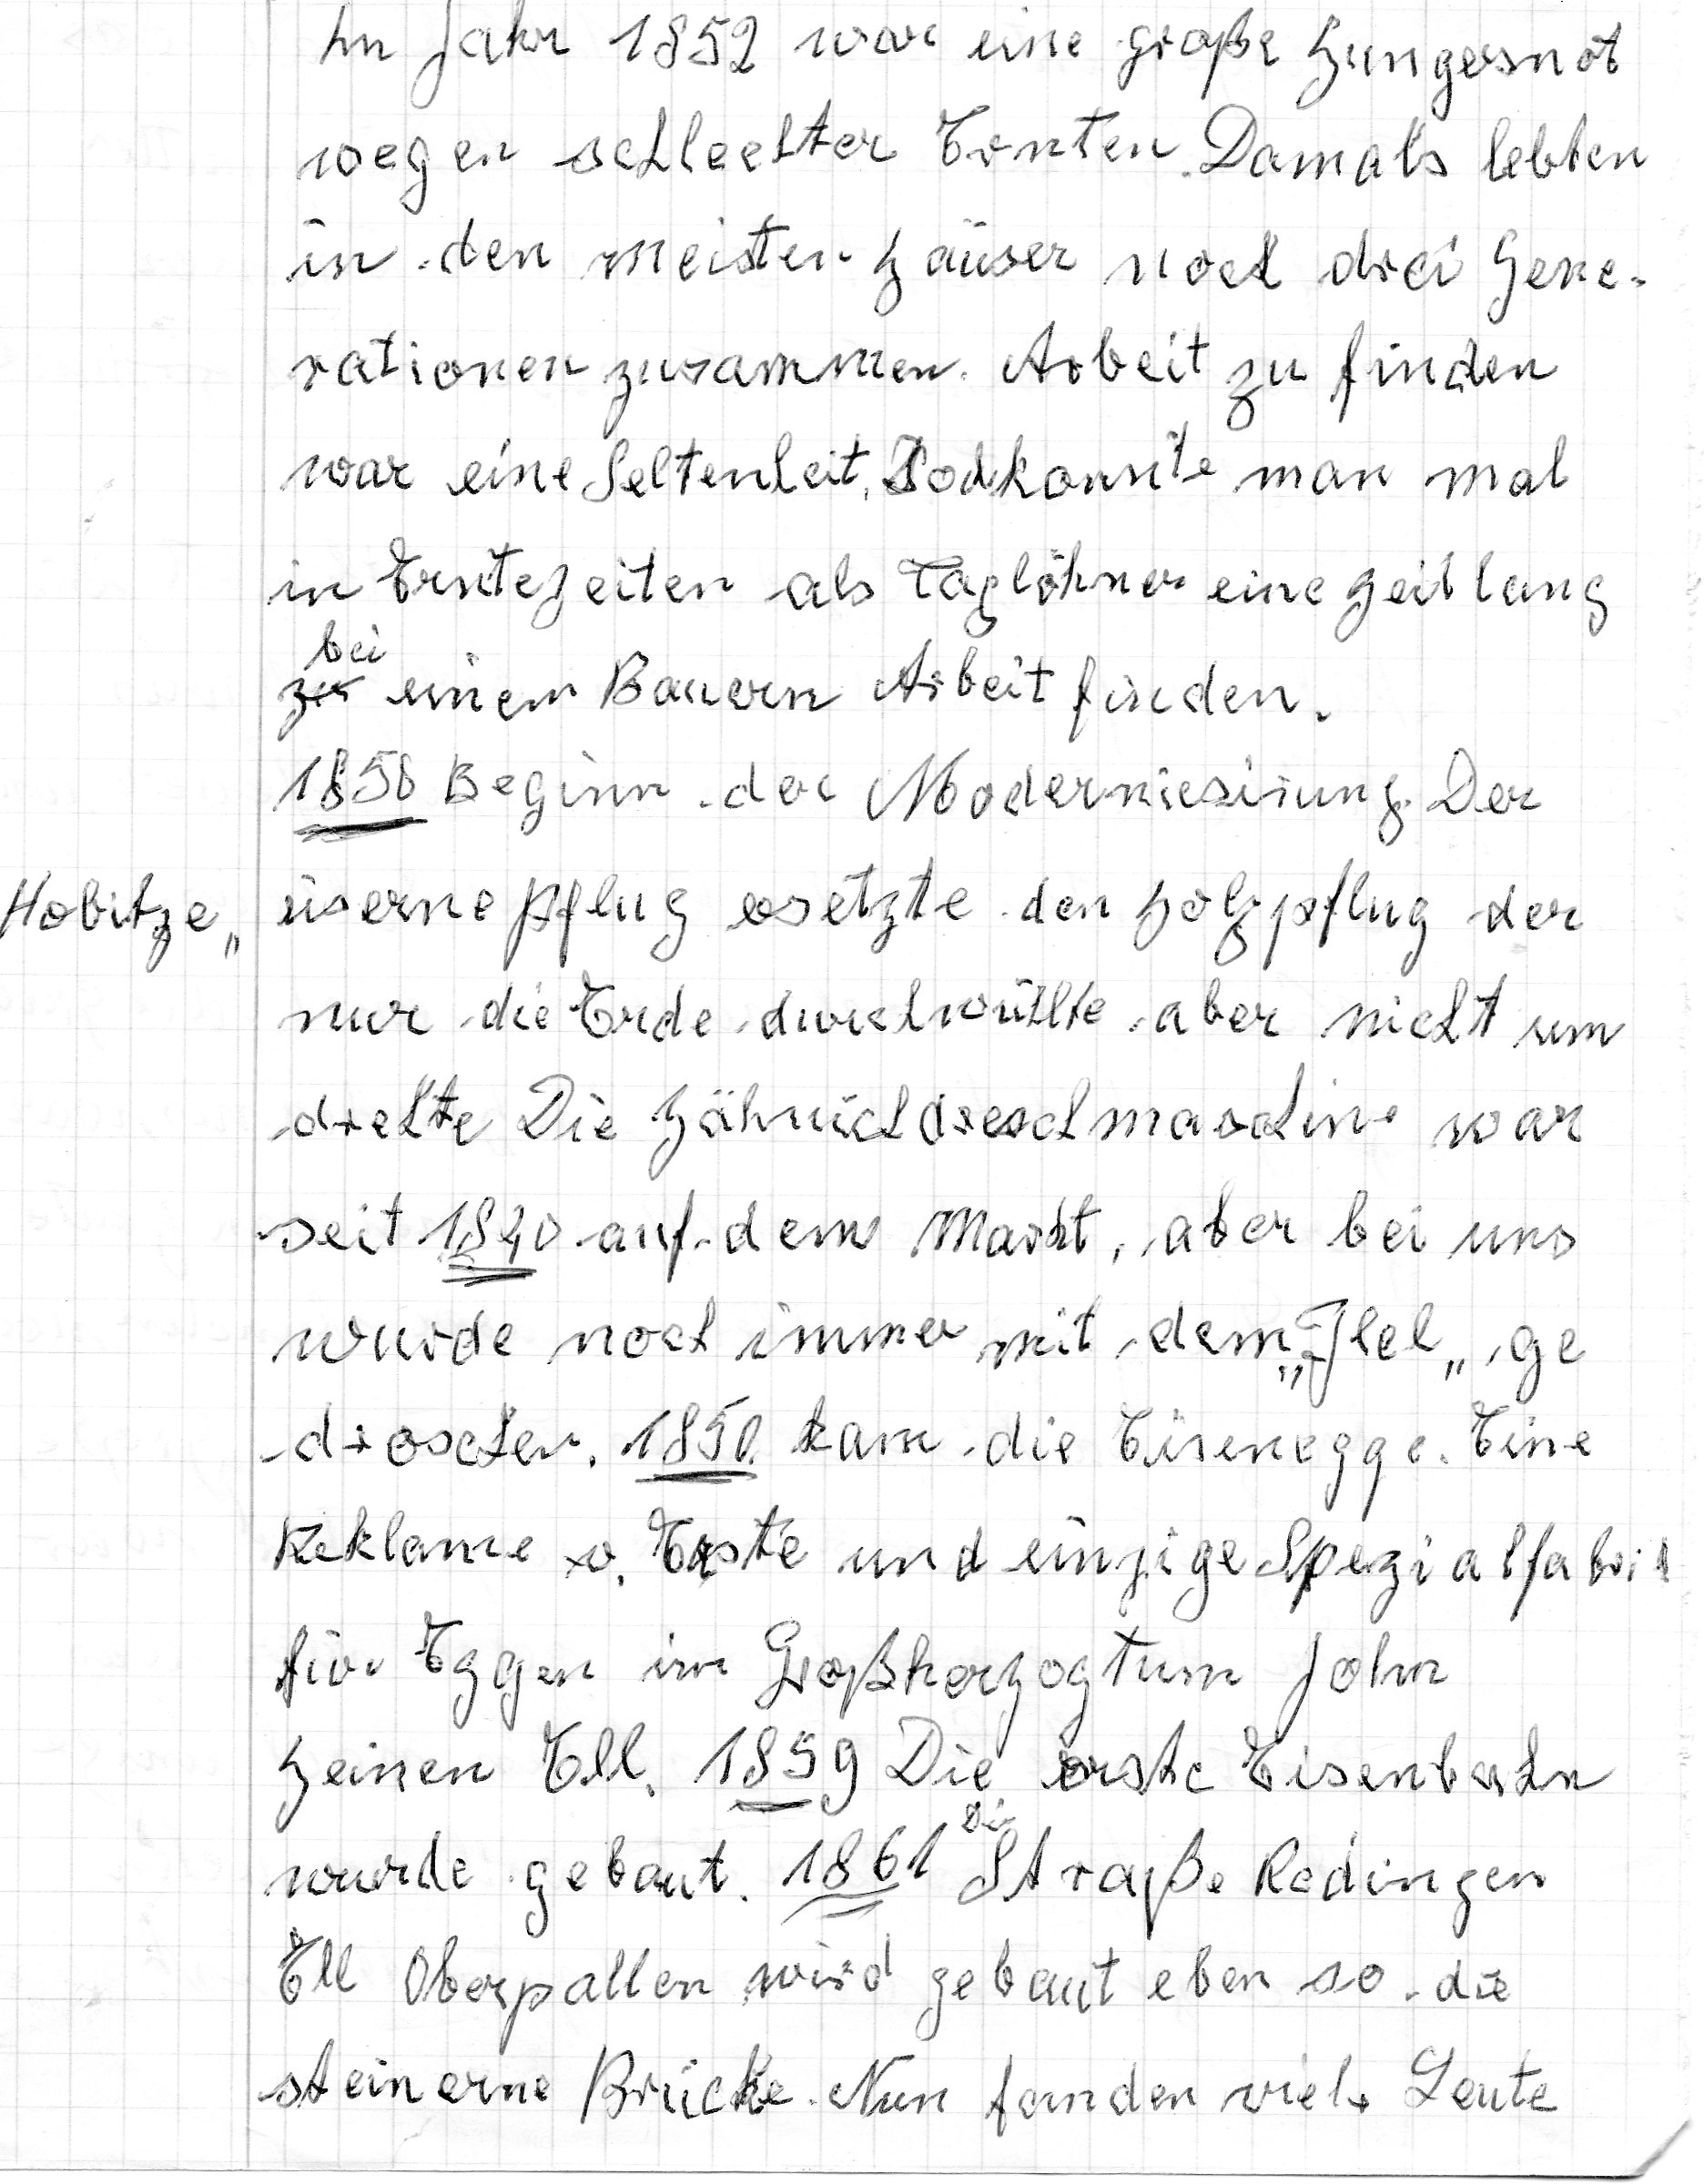 Im Jahr 1852 war eine große Hungersnot
wegen schlechter Ernten. Damals lebten
in den meisten Häuser noch drei Gene-
rationen zusammen. Arbeit zu finden
war eine Seltenheit, konnte man mal
in Erntezeiten als Taglöhner eine Zeitlang
bei
zu einem Bauern Arbeit finden.
1858 Beginn der Moderniesirung. Der
Hobitze„
iserne Pflug ersetzte den Holzpflug der
nur die Erde durchwühlte aber nicht um
drehte Die dreschmaschine war
seit 1840 auf dem Markt, aber bei uns
wurde noch immer mit dem „Flel„ ge
droschen. 1850. kam die Eisenegge. Eine
Reklame v. Erste und einzige Spezialfabrik
für Eggen im Großherzogtum John
Heinen Ell. 1859 Die erste Eisenbahn
wurde gebaut. 1861 Die Straße Redingen
Ell Oberpallen wird gebaut eben so die
steinerne Brücke. Nun fanden viele Leute